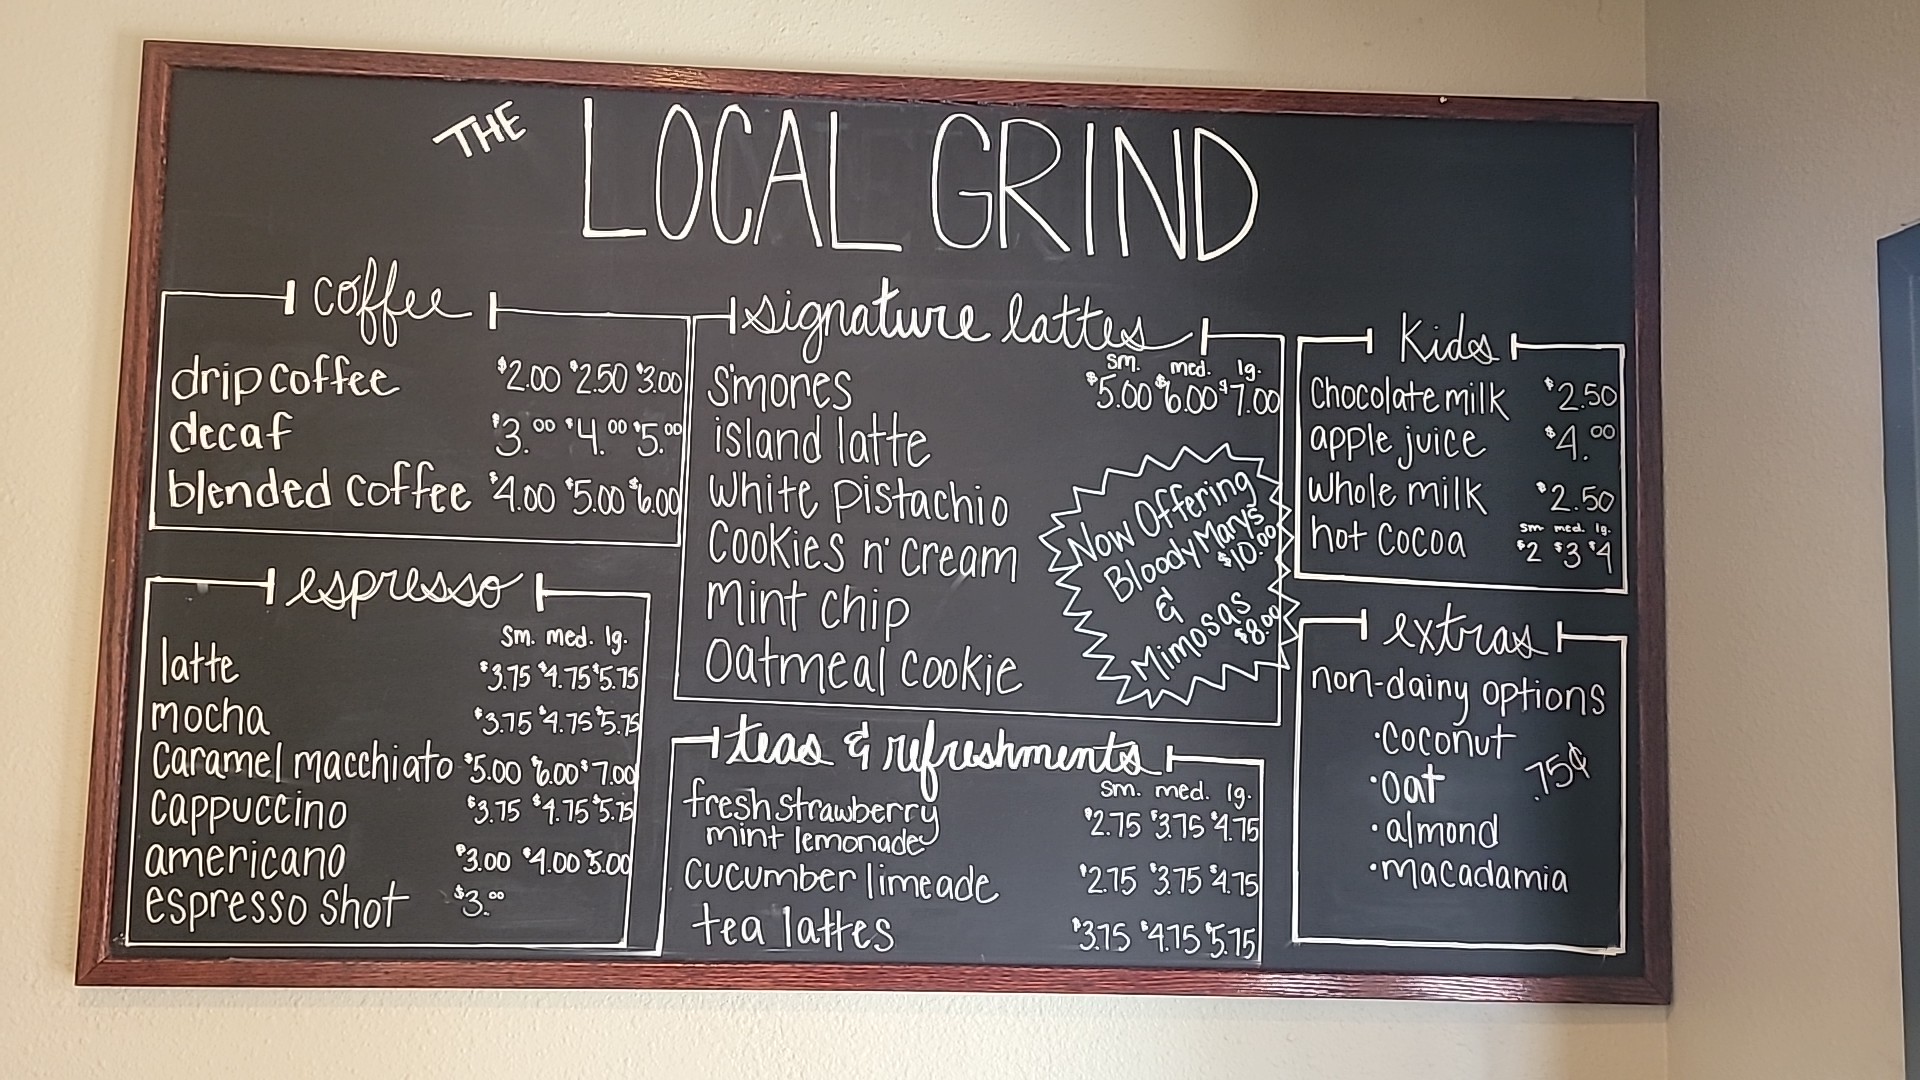 THE LOCAL GRIND
coffee
drip coffee $2.00 $2.50 $3.00
decaf $3.00 $4.00 $5.00
blended coffee $4.00 $5.00 $6.00
espresso
sm. med. lg.
latte $3.75 $4.75 $5.75
mocha $3.75 $4.75 $5.75
caramel macchiato $5.00 $6.00 $7.00
cappuccino $3.75 $4.75 $5.75
americano $3.00 $4.00 5.00
espresso shot $3.00
signature lattes
sm. med. lg.
S'mores $5.00 $6.00 $7.00
island latte
white pistachio
cookies n' cream
mint chip
oatmeal cookie
Now Offering
Bloody Mary's
$10.00
&
Mimosas
$8.00
teas & refreshments
sm. med. lg.
fresh strawberry
mint lemonade $2.75 $3.75 $4.75
cucumber limeade $2.75 $3.75 $4.75
tea lattes $3.75 $4.75 $5.75
Kids
Chocolate milk $2.50
apple juice $4.00
whole milk $2.50
sm med. lg.
hot cocoa $2 $3 $4
extras
non-dairy options
·coconut
·oat .75¢
·almond
·macadamia